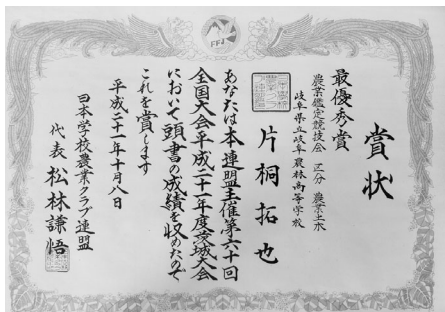 賞状
最優秀賞
農業鑑定競技会 区分 農業土木
岐阜県立岐阜農林高等学校
片桐拓也
あなたは本連盟主催第六十回
全国大会平成二十一年度茨城大会
において頭書の成績を収めたので
これを賞します
平成二十一年十月八日
日本学校農業クラブ連盟
代表 松林謙悟
FFJ